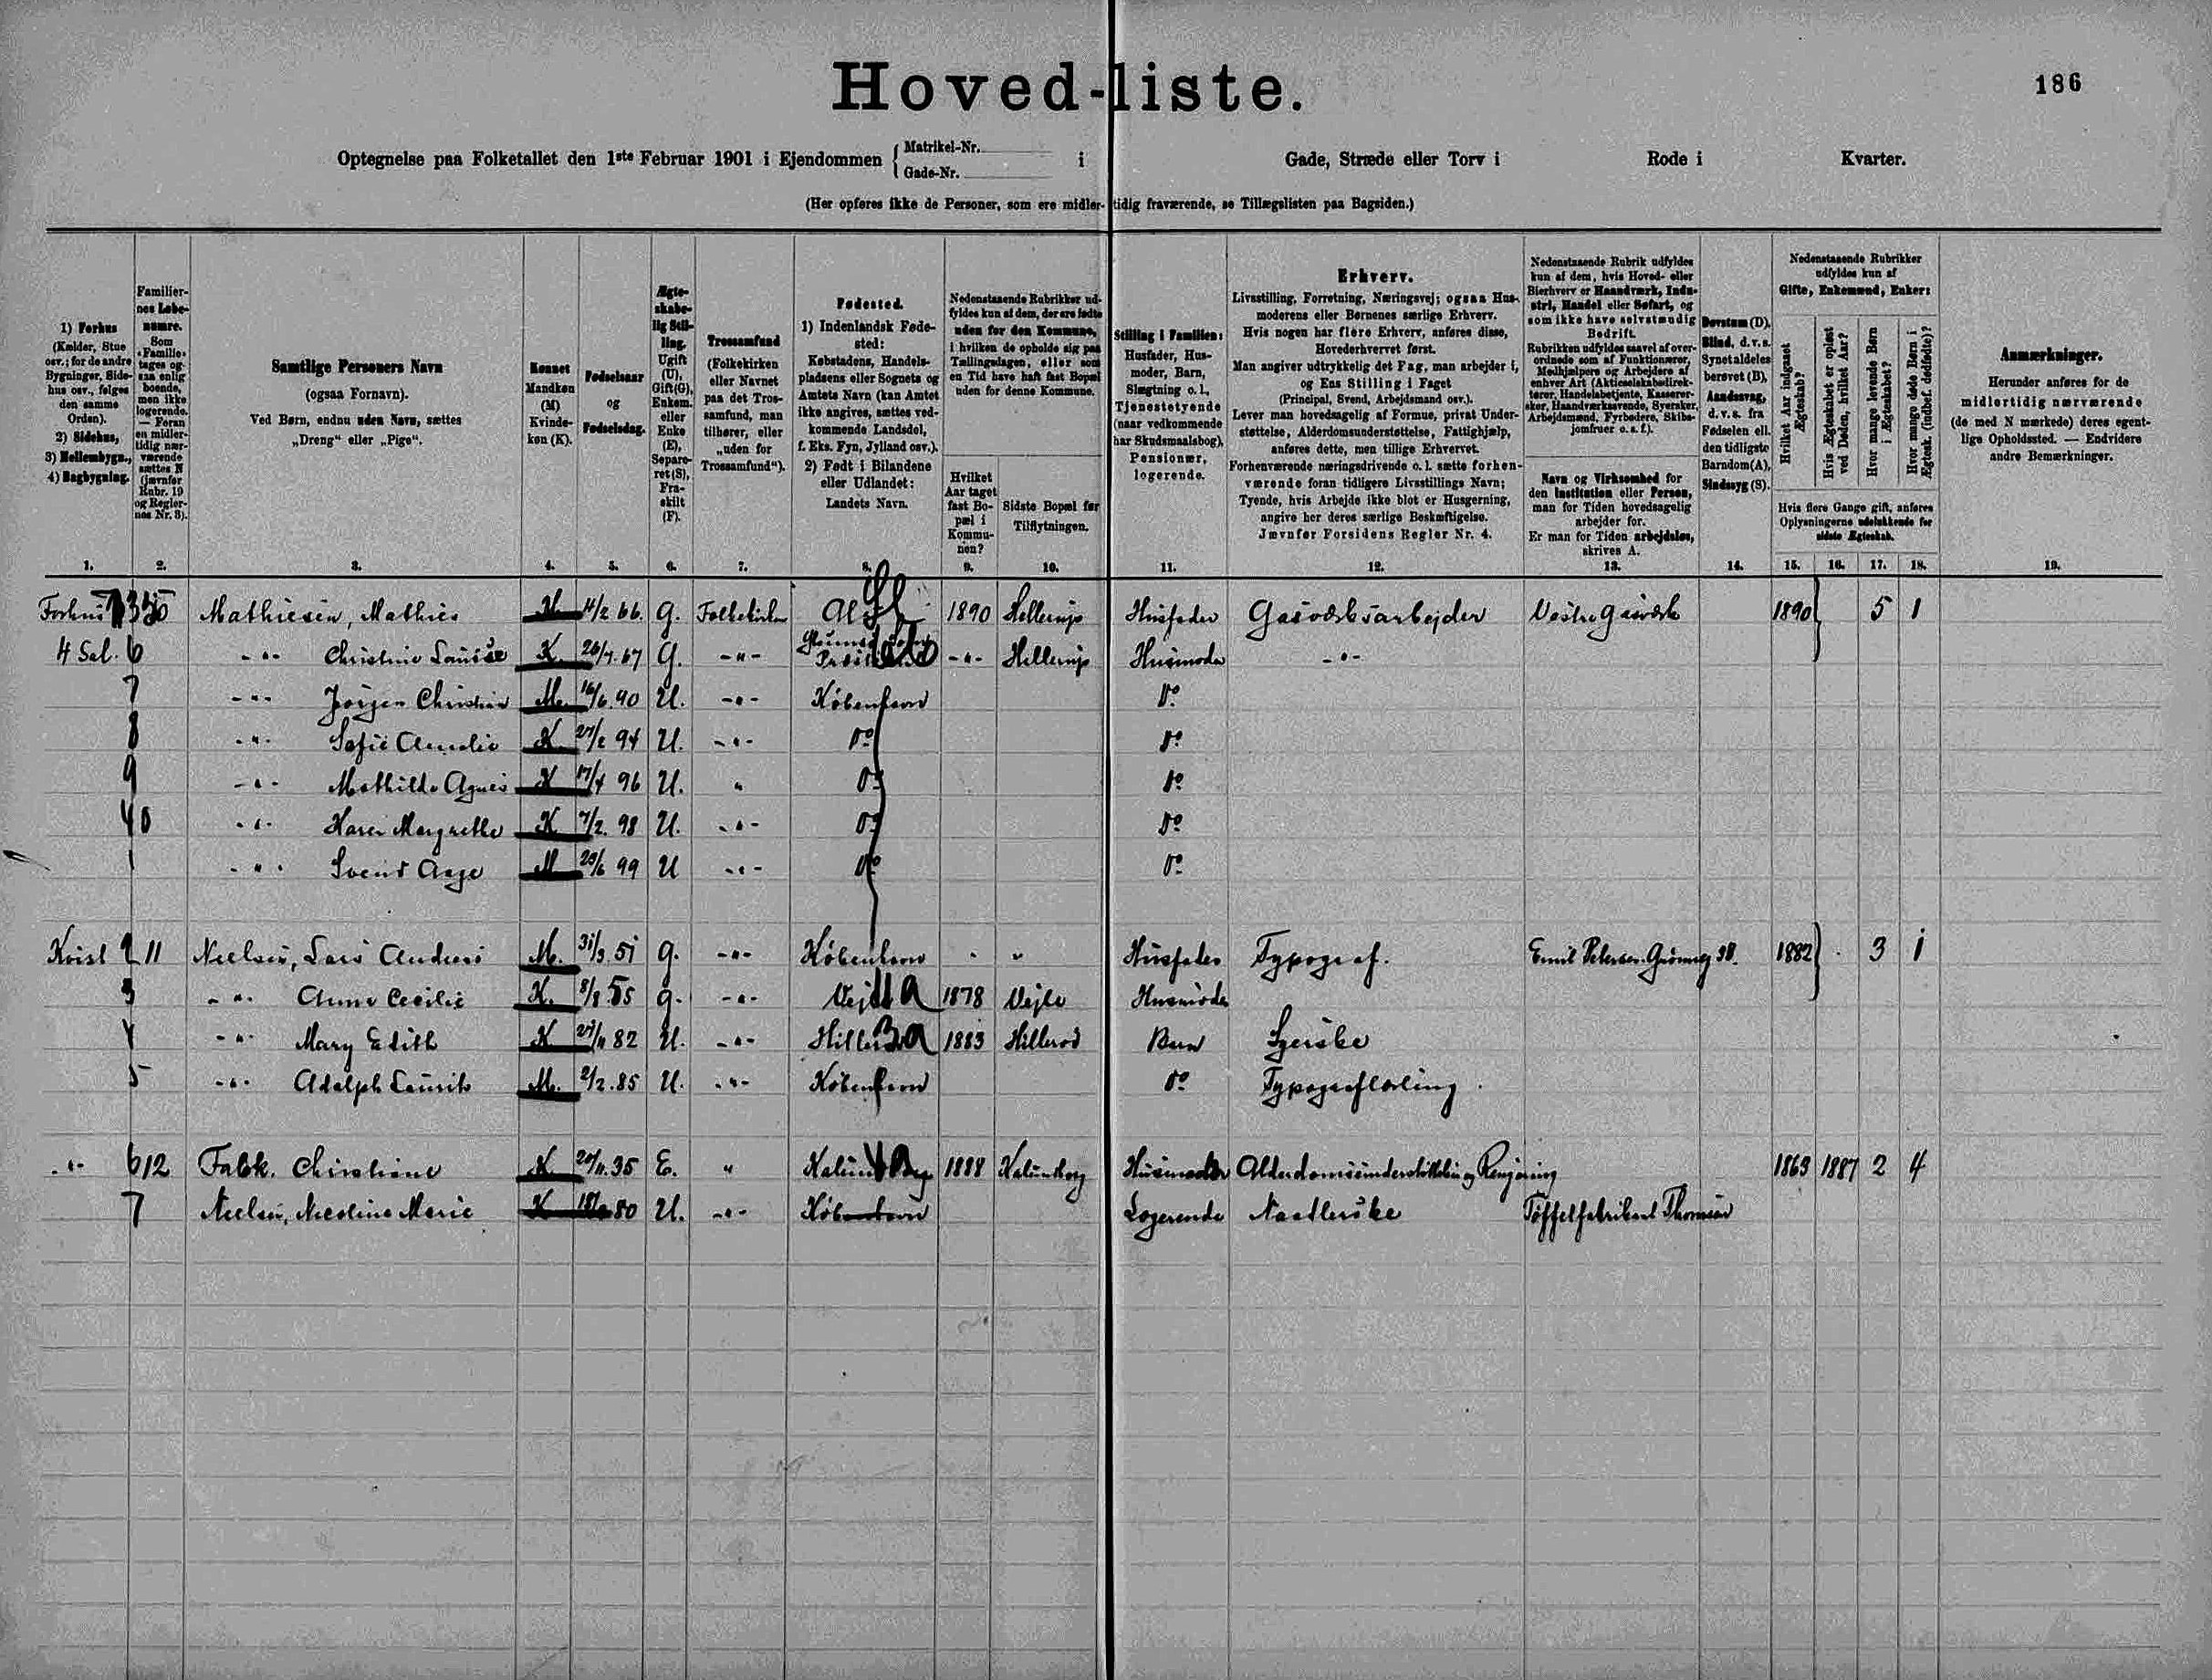 Hoved-liste.
186
Optegnelse paa Folketallet den 1ste Februar 1901 i Ejendommen { Matrikel-Nr. Gade-Nr. i Gade, Stræde eller Torv i Rode i Kvarter.
(Her opføres ikke de Personer, som ere midlertidig fraværende, se Tillægslisten paa Bagsiden.)
1) Forhus (Kælder, Stue osv.; for de andre Bygninger, Sidehus osv., følges den samme Orden). 2) Sidehus, 3) Mellembygn., 4) Bagbygning.
Familiernes Løbenumre. Som »Familie« tages ogsaa enlig boende, men ikke logerende. — Foran en midlertidig nærværende sættes N (jævnfør Rubr. 19 og Reglernes Nr. 3).
Samtlige Personers Navn (ogsaa Fornavn). Ved Børn, endnu uden Navn, sættes „Dreng“ eller „Pige“.
Kønnet Mandkøn (M) Kvindekøn (K).
Fødselsaar og Fødselsdag.
Ægteskabelig Stilling. Ugift (U), Gift (G), Enkem. eller Enke (E), Separeret (S), Fraskilt (F).
Trossamfund (Folkekirken eller Navnet paa det Trossamfund, man tilhører, eller „uden for Trossamfund“).
Fødested. 1) Indenlandsk Fødested: Købstadens, Handelspladsens eller Sognets og Amtets Navn (kan Amtet ikke angives, sættes vedkommende Landsdel, f. Eks. Fyn, Jylland osv.). 2) Født i Bilandene eller Udlandet: Landets Navn.
Nedenstaaende Rubrikker udfyldes kun af dem, der ere fødte uden for den Kommune, i hvilken de opholde sig paa Tællingsdagen, eller som en Tid have haft fast Bopæl uden for denne Kommune.
Hvilket Aar taget fast Bopæl i Kommunen?
Sidste Bopæl før Tilflytningen.
Stilling i Familien: Husfader, Husmoder, Barn, Slægtning o. l., Tjenestetyende (naar vedkommende har Skudsmaalsbog), Pensionær, logerende.
Erhverv. Livsstilling, Forretning, Næringsvej; ogsaa Husmoderens eller Børnenes særlige Erhverv. Hvis nogen har flere Erhverv, anføres disse, Hovederhvervet først. Man angiver udtrykkelig det Fag, man arbejder i, og Ens Stilling i Faget (Principal, Svend, Arbejdsmand osv.). Lever man hovedsagelig af Formue, privat Understøttelse, Alderdomsunderstøttelse, Fattighjælp, anføres dette, men tillige Erhvervet. Forhenværende næringsdrivende o. l. sætte forhenværende foran tidligere Livsstillings Navn; Tyende, hvis Arbejde ikke blot er Husgerning, angive her deres særlige Beskæftigelse. Jævnfør Forsidens Regler Nr. 4.
Nedenstaaende Rubrik udfyldes kun af dem, hvis Hoved- eller Bierhverv er Haandværk, Industri, Handel eller Søfart, og som ikke have selvstændig Bedrift. Rubrikken udfyldes saavel af overordnede som af Funktionærer, Medhjælpere og Arbejdere af enhver Art (Aktieselskabsdirektører, Handelsbetjente, Kassererer­sker, Haandværkssvende, Syersker, Arbejdsmænd, Fyrbødere, Skibsjomfruer o. s. f.). Navn og Virksomhed for den Institution eller Person, man for Tiden hovedsagelig arbejder for. Er man for Tiden arbejdsløs, skrives A.
Døvstum (D). Blind, d. v. s. Synet aldeles berøvet (B), Aandssvag, d. v. s. fra Fødselen ell. den tidligste Barndom (A), Sindssyg (S).
Nedenstaaende Rubrikker udfyldes kun af Gifte, Enkemænd, Enker:
Hvilket Aar indgaaet Ægteskab?
Hvis Ægteskabet er opløst ved Døden, hvilket Aar?
Hvor mange levende Børn i Ægteskabet?
Hvor mange døde Børn i Ægtesk. (indbef. dødfødte)?
Hvis flere Gange gift, anføres Oplysningerne udelukkende for sidste Ægteskab.
Anmærkninger. Herunder anføres for de midlertidig nærværende (de med N mærkede) deres egentlige Opholdssted. — Endvidere andre Bemærkninger.
1. 2. 3. 4. 5. 6. 7. 8. 9. 10. 11. 12. 13. 14. 15. 16. 17. 18. 19.
Forhus Mathiesen, Mathies M 14/2 66. G. Folkekirken 1890 Hellerup Husfader Gasværksarbejder Vestre Gasværk 1890 5 1
4 Sal. 6 -"- Christine Louise K. 26/7. 67 G. -"- -"- Hellerup Husmoder -"-
7 -"- Jørgen Christian M. 16/6. 90 U. -"- København do
8 -"- Sofie Amalie K. 27/2 94 U. -"- do do
9 -"- Mathilde Agnes K 17/4 96 U. " do do
40 -"- Karen Margrethe K 7/2. 98 U. -"- do do
1 -"- Svend Aage M 20/6 99 U -"- do do
Kvist 2 11 Nielsen, Lars Anders M. 31/3 51 G. -"- København " " Husfader Typograf. Emil Petersen. 1882 3 1
3 -"- Anna Cecilie K. 8/8 55 G. -"- Vejle 1878 Vejle Husmoder
4 -"- Mary Edith K 82 U. -"- Hillerød 1883 Hillerød Barn Syerske
5 -"- Adolph Laurits M. 2/2. 85 U. -"- København do Typograflærling.
-"- 6 12 Falck. Christiane K 20/11. 35 E. " Kalundborg 1888 Kalundborg Husmoder Alderdomsunderstøttelse og Rengøring 1863 1887 2 4
7 Nielsen, Nicoline Marie K 80 U. -"- København Logerende Naadlerske Tøffelfabrikant Thomsen